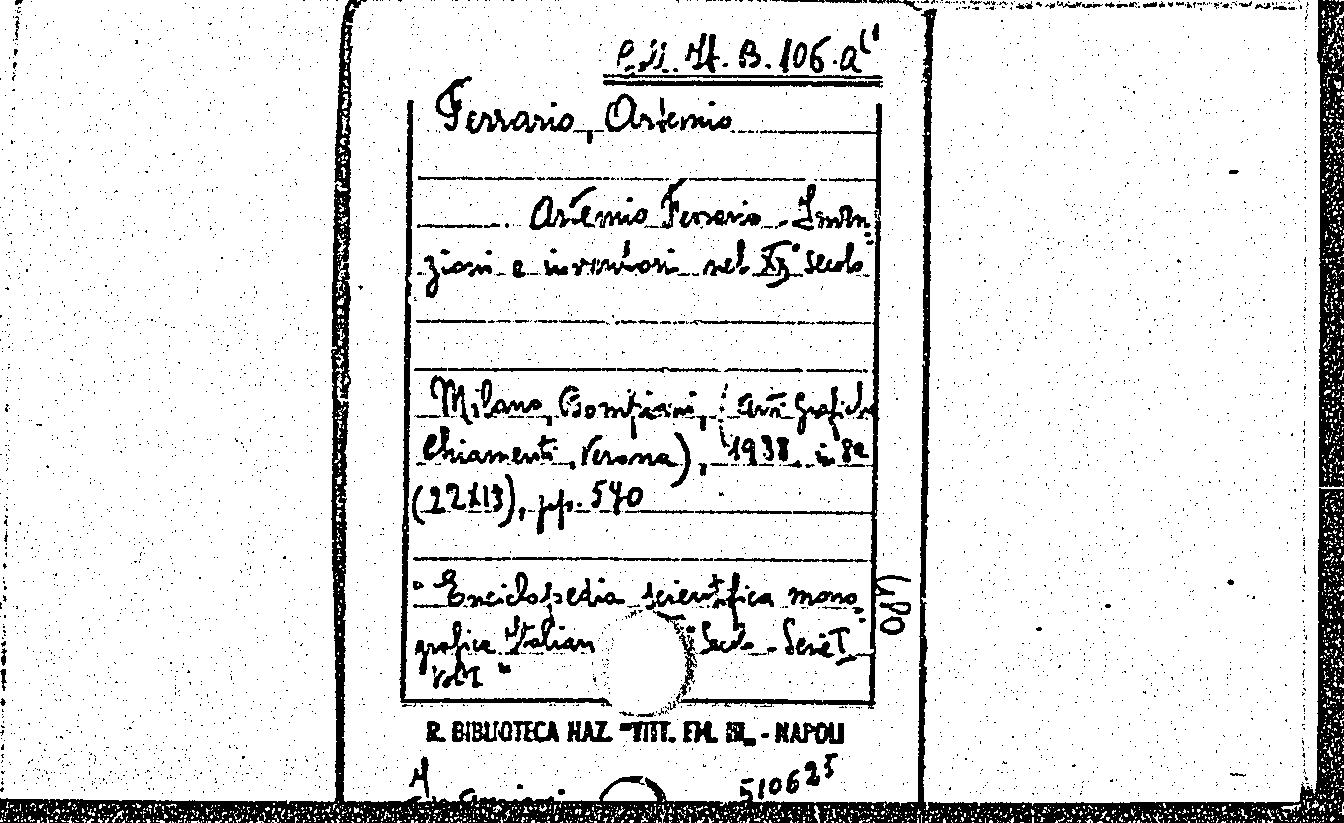 B. 106. a(1
Ferrario, Artemio
Artemio Ferrario - Inven-
zioni e inventori nel XX° secolo
Milano, Bompiani, (Arti Grafiche
Chiamenti, Verona), 1938. in 8º
(22X13), pp. 540
" Enciclopedia scientifica mono-
grafica Italian Secolo - Serie I
Vol I "
R. BIBLIOTECA NAZ. "VITT. EM. III„ - NAPOLI
510625